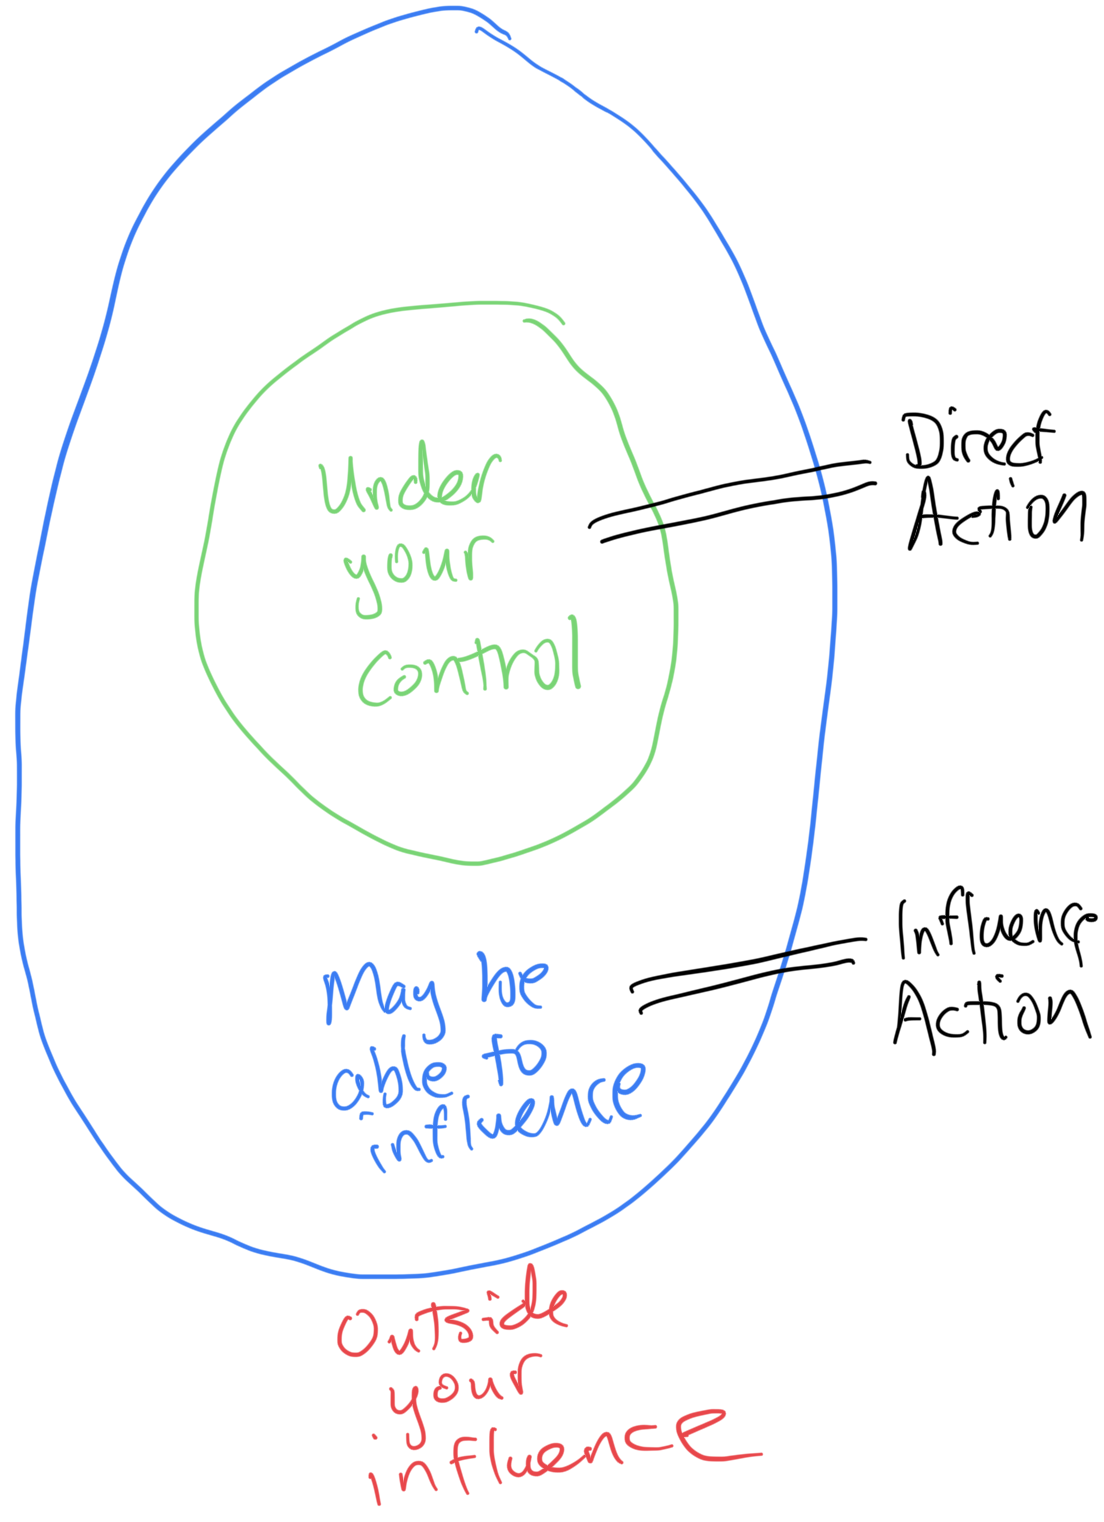 Under
your
Control
Direct
Action
May be
able to
influence
Influence
Action
Outside
your
influence